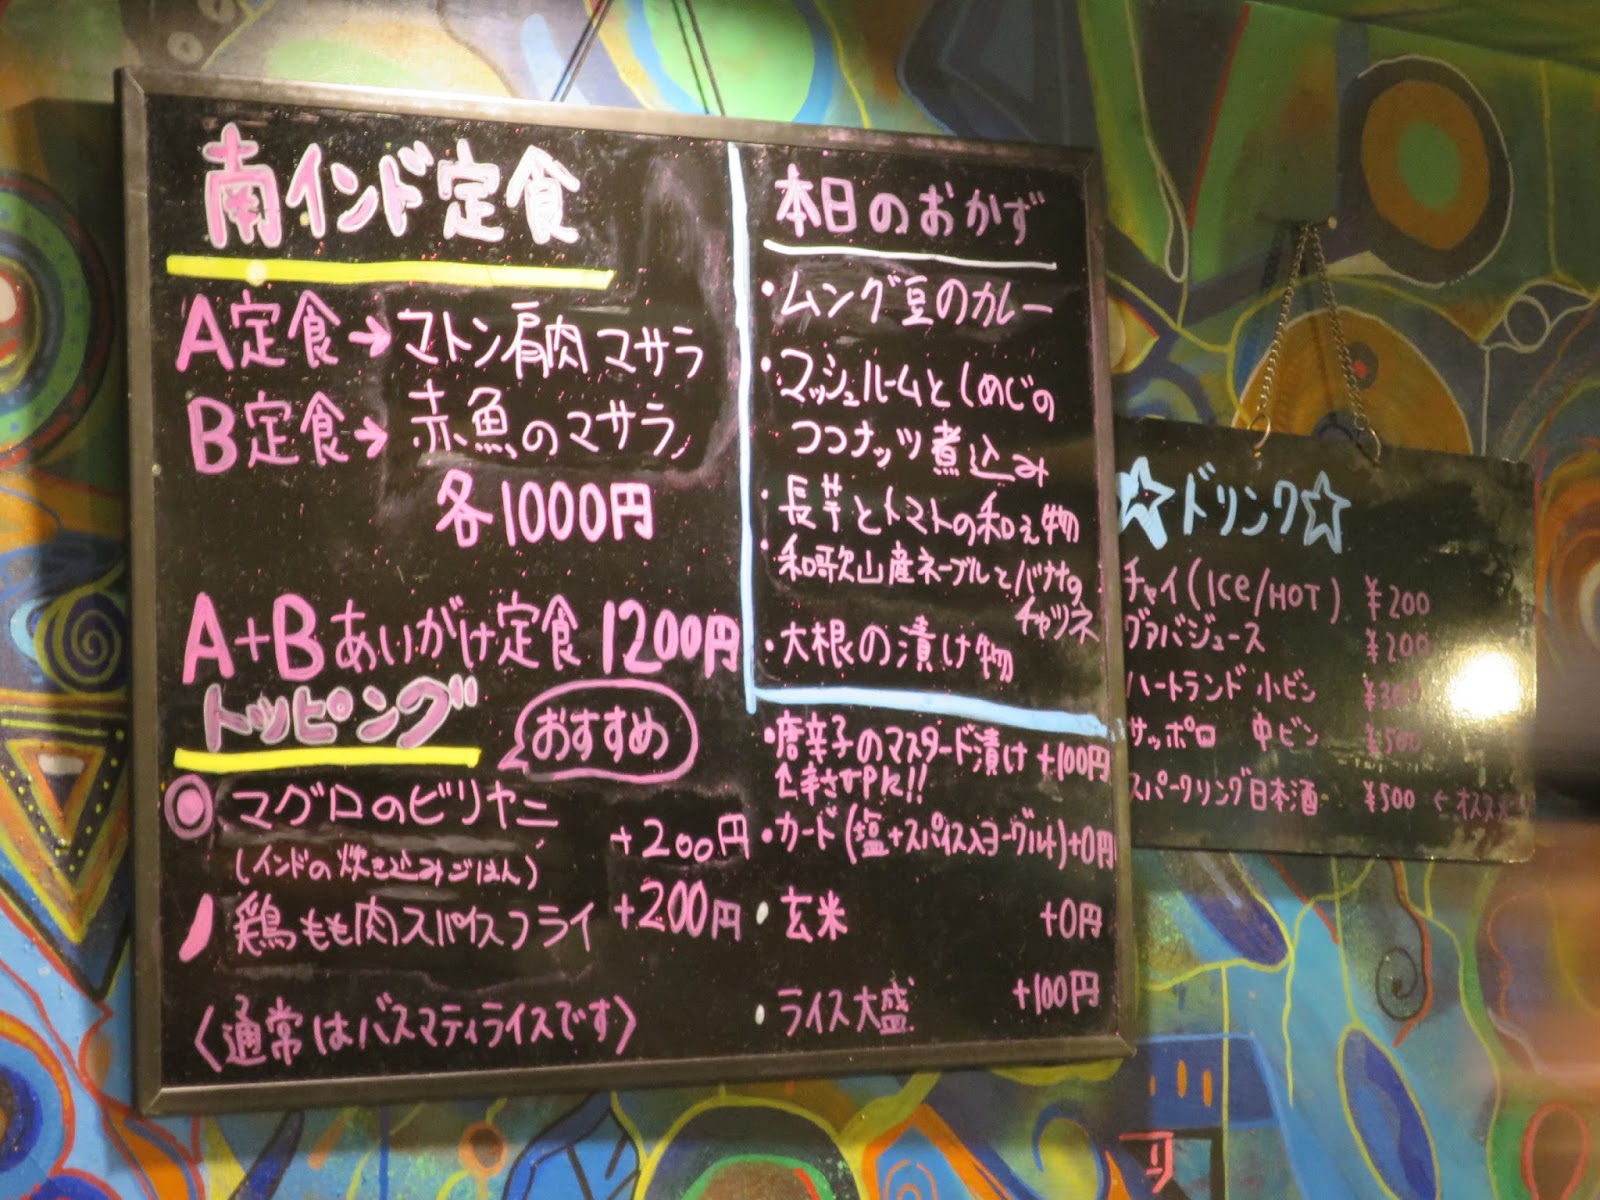 南インド定食
A定食→マトン肩肉マサラ
B定食→赤魚のマサラ
各1000円
A+Bあいがけ定食 1200円
トッピング
おすすめ
◎マグロのビリヤニ +200円
(インドの炊き込みごはん)
鶏もも肉スパイスフライ +200円
〈通常はバスマティライスです〉
本日のおかず
・ムング豆のカレー
・マッシュルームとしめじの
ココナッツ煮込み
・長芋とトマトの和え物
・和歌山産ネーブルとバナナの
チャツネ
・大根の漬け物
・唐辛子のマスタード漬け +100円
↑辛さUPに!!
・カード(塩+スパイス入ヨーグルト)+0円
・玄米 +0円
・ライス大盛 +100円
☆ドリンク☆
チャイ(ICE/HOT) ¥200
グァバジュース ¥200
ハートランド 小ビン ¥300
サッポロ 中ビン ¥500
スパークリング日本酒 ¥500 ←オススメ